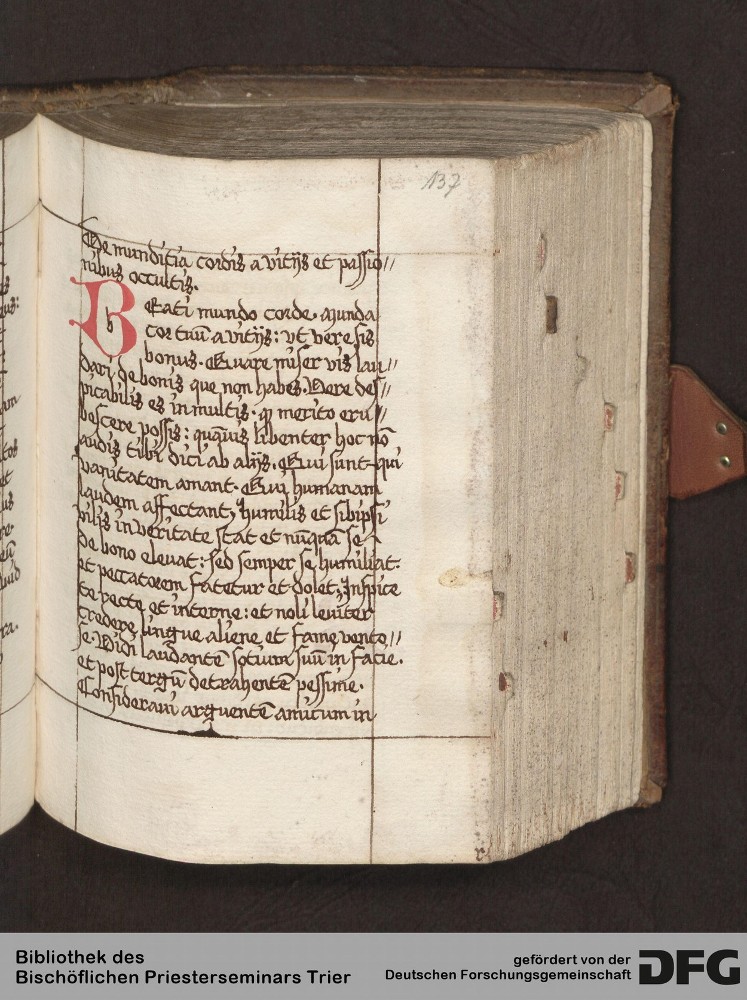 137
De munditia cordis a vitijs et passio//
nibus occultis.
B b Eati mundo corde. Munda
cor tuū a vitijs: vt vere sis
bonus. Quare miser vis lau//
dari de bonis que non habes. Vere des//
picabilis es in multis. qꝫ merito eru//
bescere possis: quāuis libenter hoc nō
audis tibi dici ab alijs. Qui sunt qui
vanitatem amant. Qui humanam
laudem affectant, humilis et sibipsi
vilis in veritate stat et nūquā se
de bono eleuat: sed semper se humiliat.
et peccatorem fatetur et dolet, Inspice
te recte et interne: et noli leuiter
credere lingue aliene et fame vento//
se. Vidi laudantē sotium suū in facie.
et post tergū detrahentē pessime.
Consideraui arguentē amicum in
am
tos
et
us
re
eū
ra.
Bibliothek des
Bischöflichen Priesterseminars Trier
gefördert von der
Deutschen Forschungsgemeinschaft
DFG